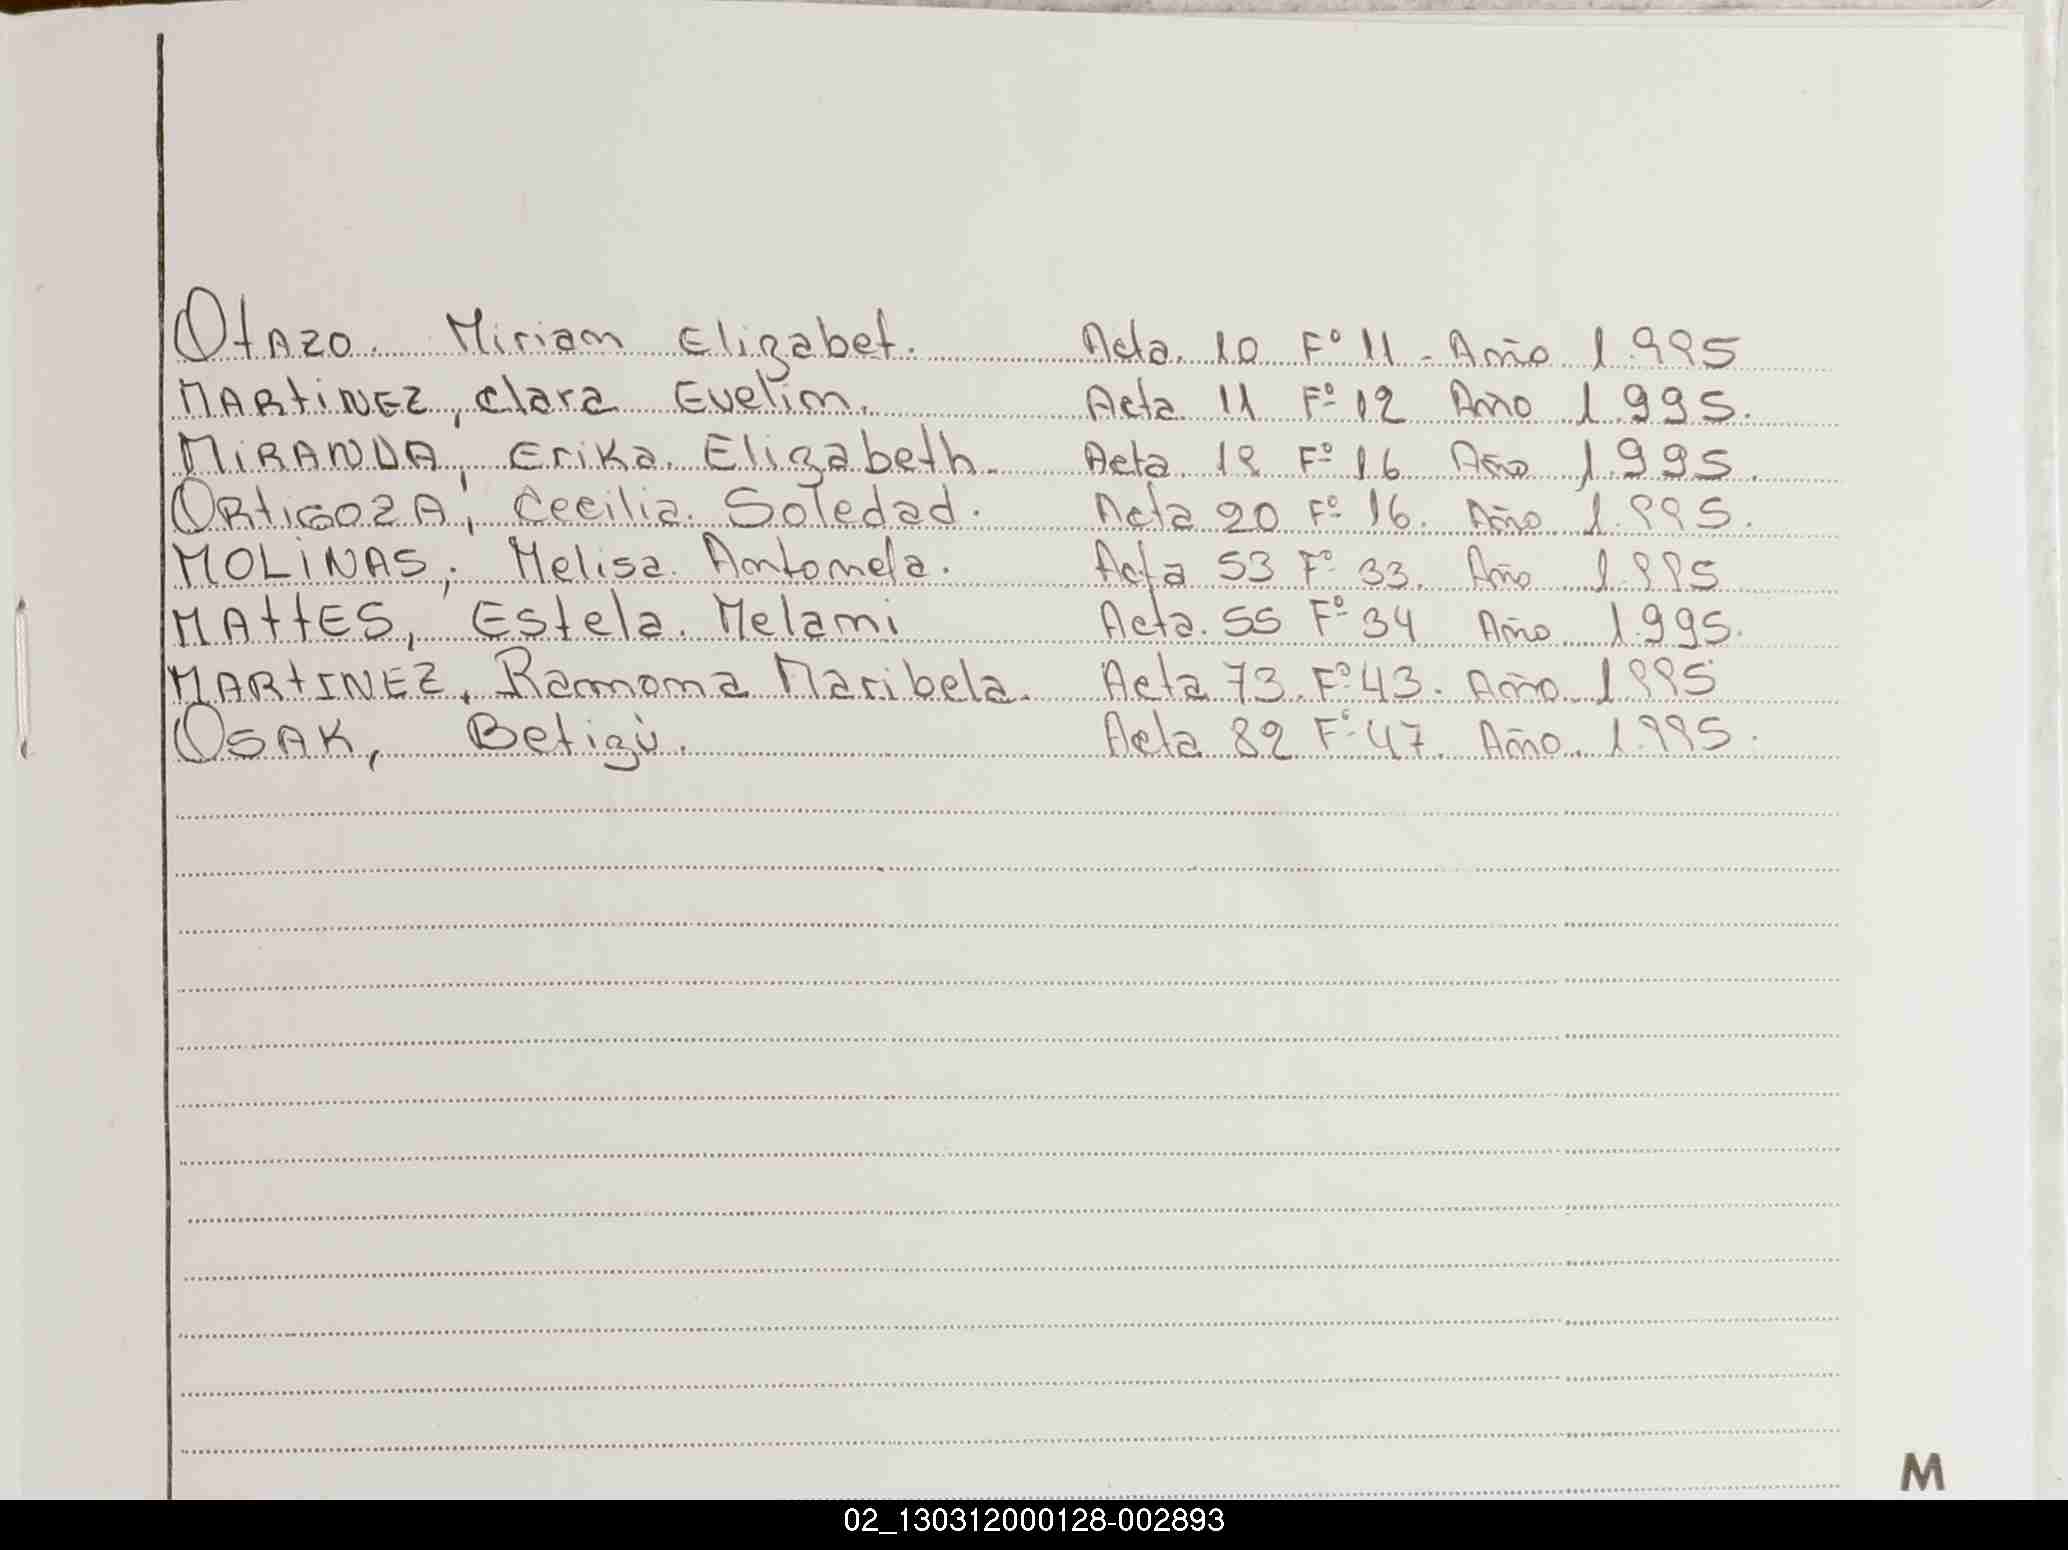 OtAzo. Miriam Elizabet. Acta. 10 Fº 11 - Año 1.995
MARtiNEZ, Clara Evelin. Acta 11 Fº 12 Año 1.995.
MiRANDA, Erika. Elizabeth. Acta. 18 Fº 16 Año 1.995.
ORtiGOZA, Cecilia. Soledad. Acta 20 Fº 16. Año 1.995.
MOLiNAS, Melisa. Antonela. Acta 53 Fº 33. Año 1.995
MAttES, Estela. Melani Acta. 55 Fº 34 Año 1.995.
MARtINEZ, Ramona Maribela. Acta 73. Fº 43. Año 1995
OSAK, Betigú. Acta 82 Fº 47. Año. 1.995.
M
02_130312000128-002893